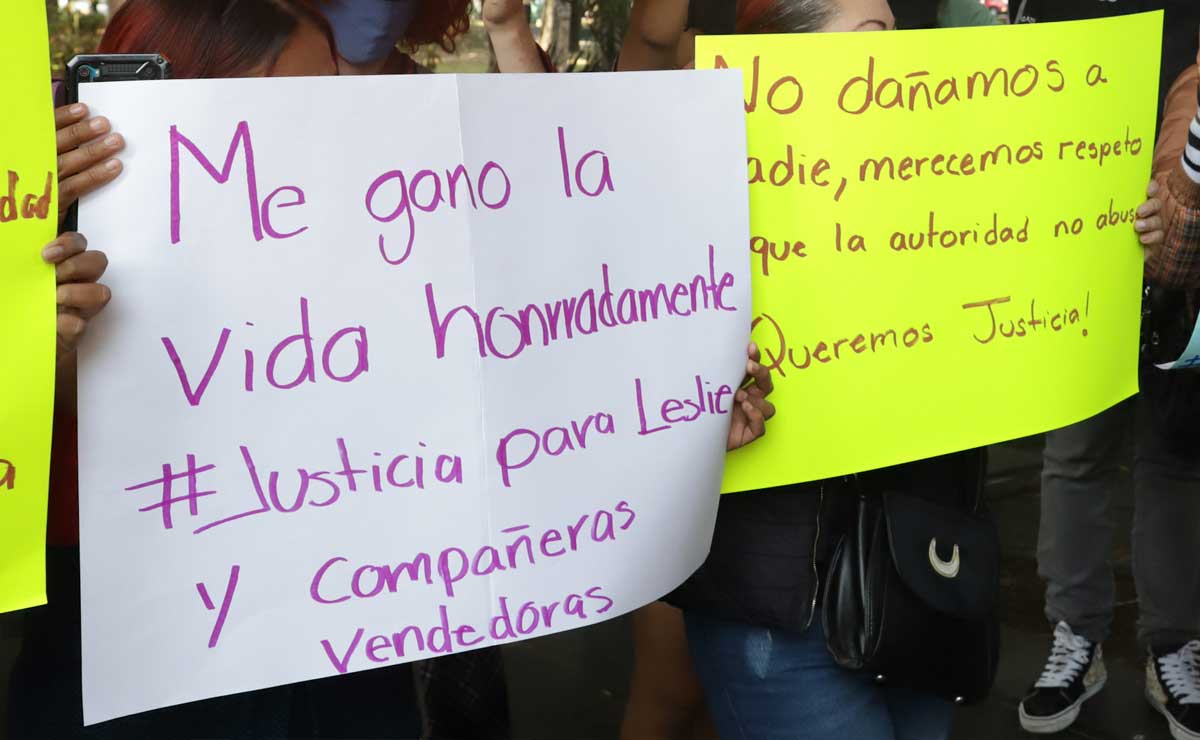 dad
a
Me gano la
vida honrradamente
#Justicia para Leslie
y compañeras
vendedoras
No dañamos a
adie, merecemos respeto
que la autoridad no abus
Queremos Justicia!